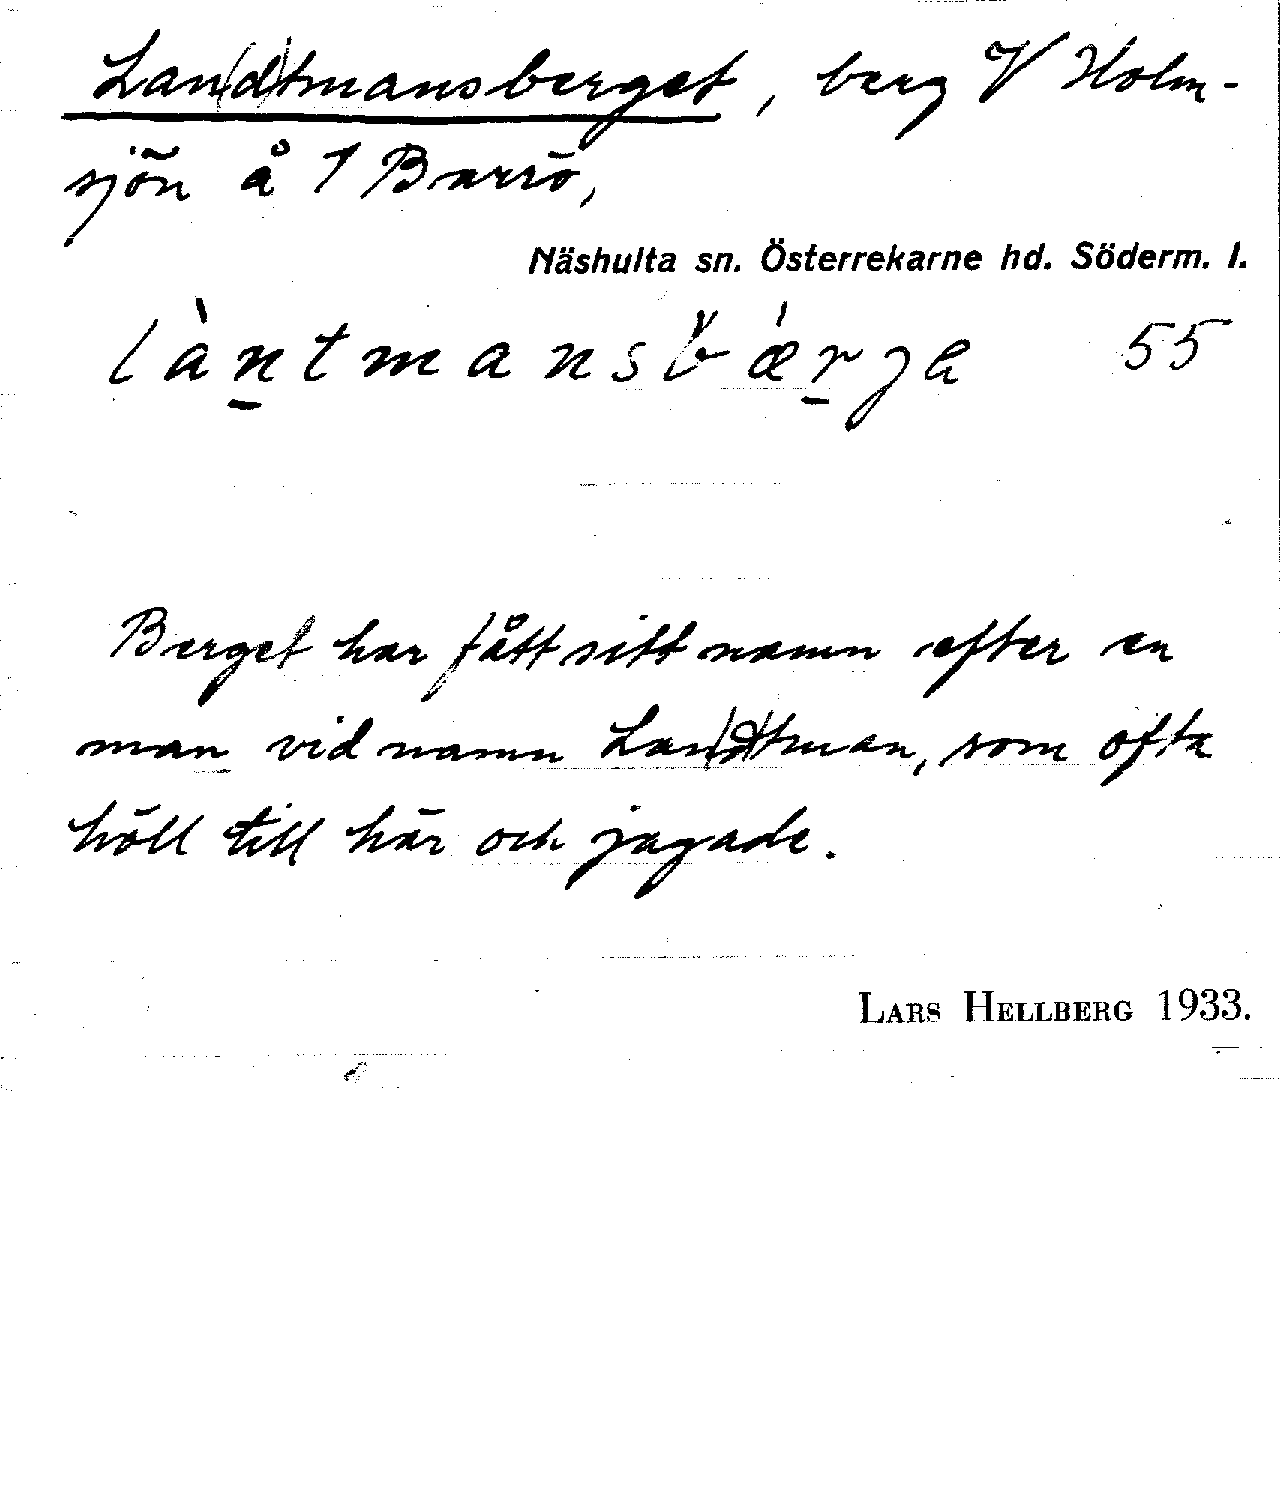 Lan(d)tmansberget, berg V Holm-
sjön å 1 Barrö,
Näshulta sn. Österrekarne hd. Söderm. l.
làn̠tmansbǽr̠ja 55
Berget har fått sitt namn efter en
man vid namn Lan(d)tman, som ofta
höll till här och jagade.
LARS HELLBERG 1933.